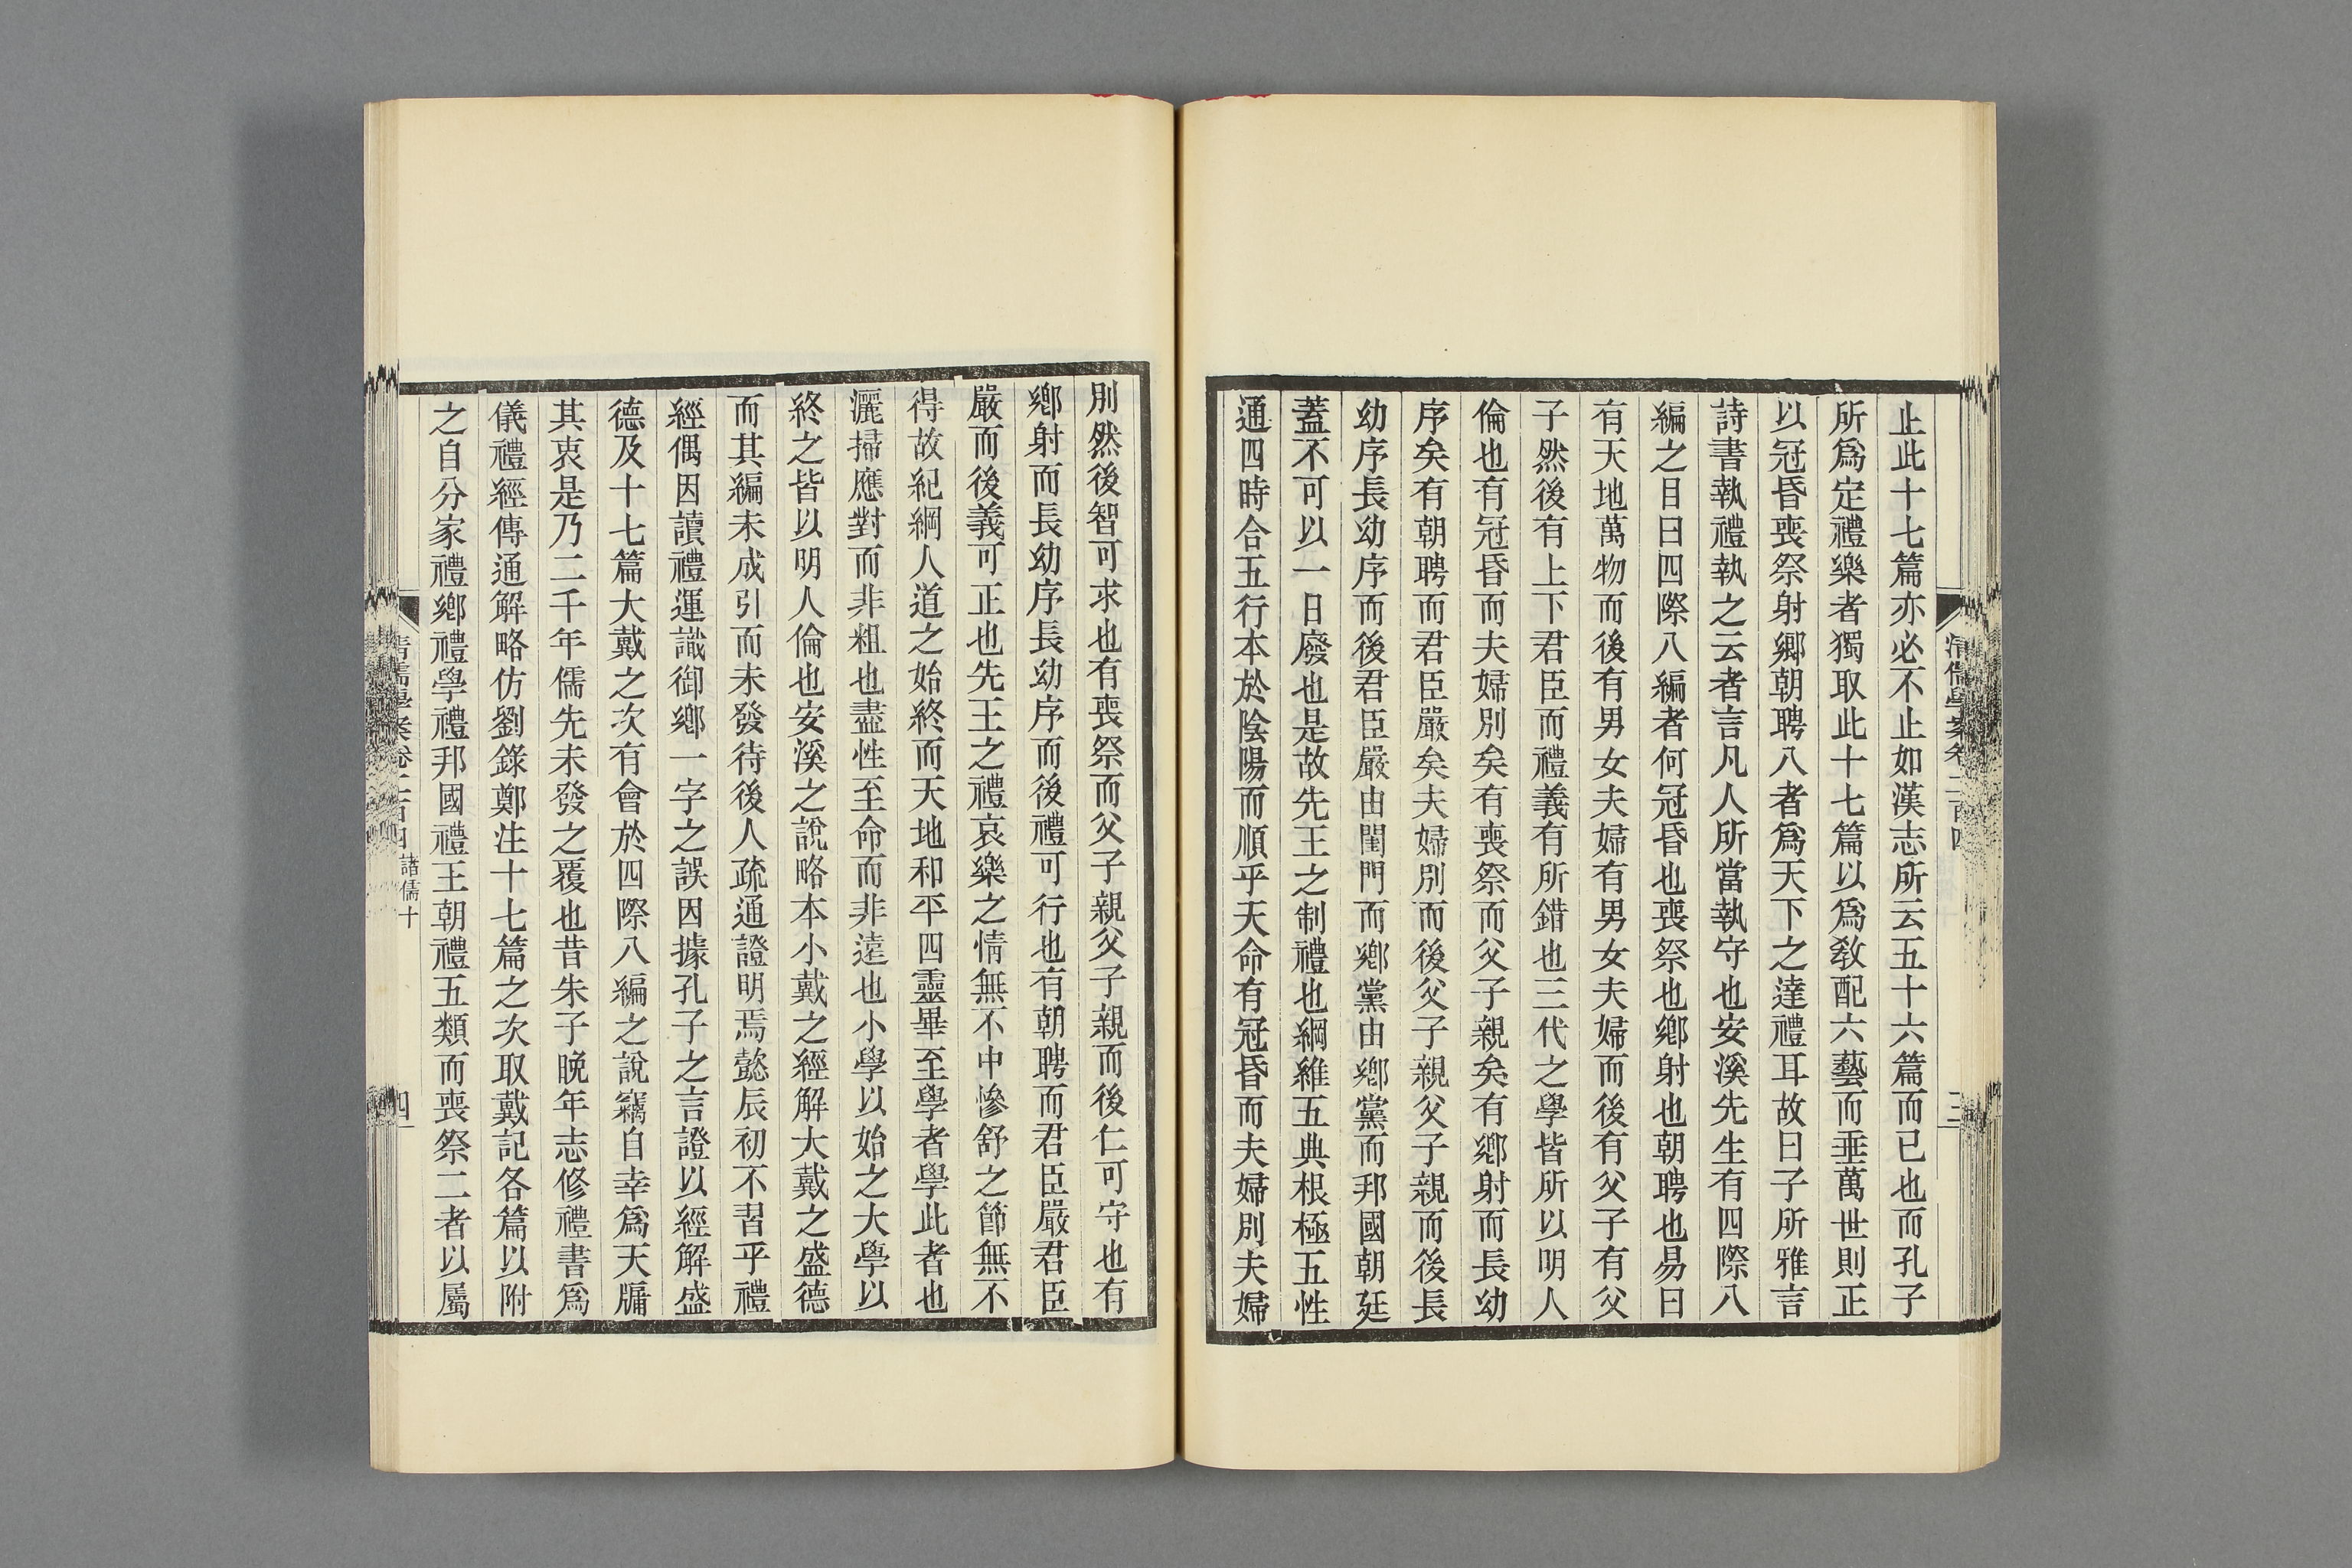 清儒學案卷二百四
三
止此十七篇亦必不止如漢志所云五十六篇而已也而孔子
所爲定禮樂者獨取此十七篇以爲敎配六藝而垂萬世則正
以冠昏喪祭射鄉朝聘八者爲天下之達禮耳故曰子所雅言
詩書執禮執之云者言凡人所當執守也安溪先生有四際八
編之目曰四際八編者何冠昏也喪祭也鄉射也朝聘也易曰
有天地萬物而後有男女夫婦有男女夫婦而後有父子有父
子然後有上下君臣而禮義有所錯也三代之學皆所以明人
倫也有冠昏而夫婦別矣有喪祭而父子親矣有鄉射而長幼
序矣有朝聘而君臣嚴矣夫婦別而後父子親父子親而後長
幼序長幼序而後君臣嚴由閨門而鄉黨由鄉黨而邦國朝廷
蓋不可以一日廢也是故先王之制禮也綱維五典根極五性
通四時合五行本於陰陽而順乎天命有冠昏而夫婦別夫婦
別然後智可求也有喪祭而父子親父子親而後仁可守也有
鄉射而長幼序長幼序而後禮可行也有朝聘而君臣嚴君臣
嚴而後義可正也先王之禮哀樂之情無不中慘舒之節無不
得故紀綱人道之始終而天地和平四靈畢至學者學此者也
灑掃應對而非粗也盡性至命而非遠也小學以始之大學以
終之皆以明人倫也安溪之說略本小戴之經解大戴之盛德
而其編未成引而未發待後人疏通證明焉懿辰初不習乎禮
經偶因讀禮運識御鄉一字之誤因據孔子之言證以經解盛
德及十七篇大戴之次有會於四際八編之說竊自幸爲天牖
其衷是乃二千年儒先未發之覆也昔朱子晚年志修禮書爲
儀禮經傳通解略仿劉錄鄭注十七篇之次取戴記各篇以附
之自分家禮鄉禮學禮邦國禮王朝禮五類而喪祭二者以屬
清儒學案卷二百四 諸儒十
四